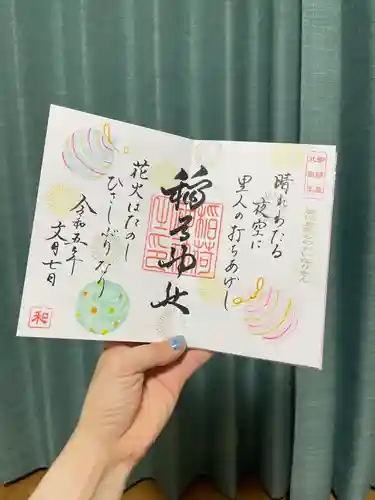 晴れわたる
夜空に
里人の打ちあげし
稲荷神社
稲荷
之印
花火はたのし
ひさしぶりなり
令和五年
文月七日
和